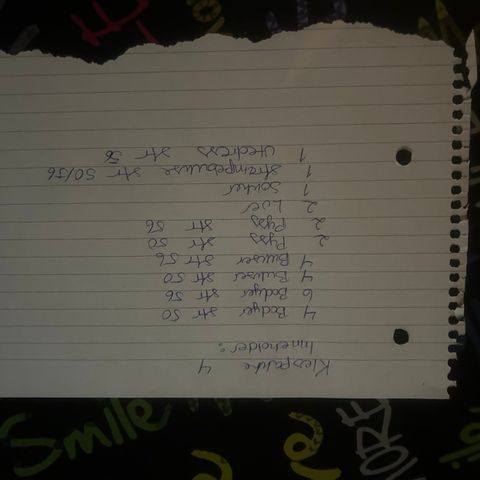 Klespakke 4
Inneholder:
4 Bodyer str 50
6 Bodyer str 56
4 Bukser str 50
4 Bukser str 56
2 Pyss str 50
2 Pyss str 56
2 Luer
1 Sokker
1 strømpebukse str 50/56
1 utedress str 56
Smile